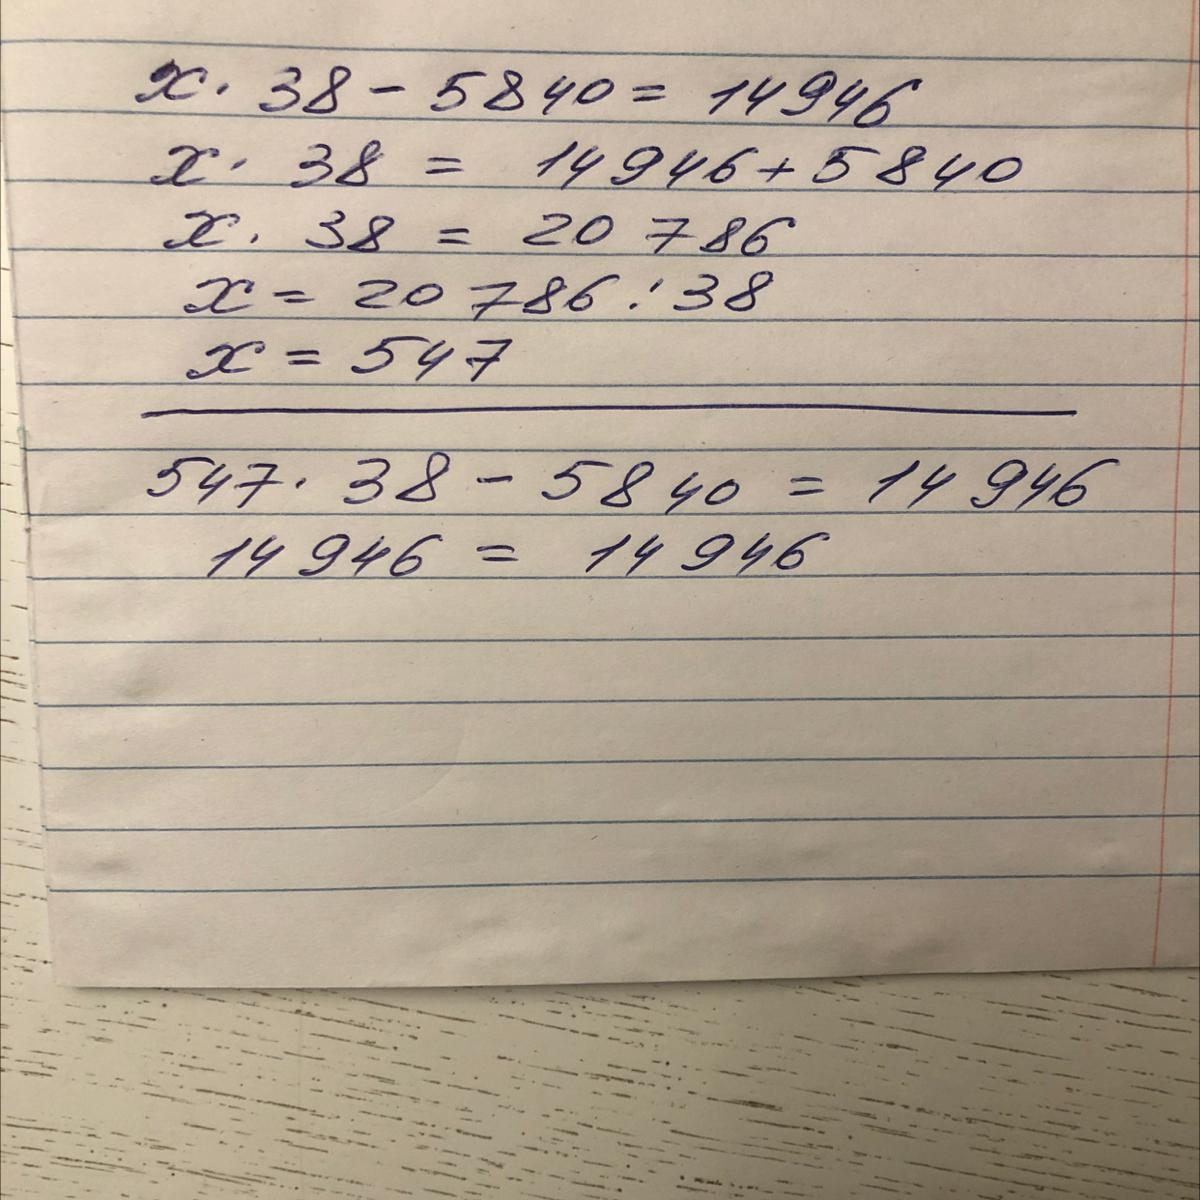 x · 38 - 5840 = 14946
x · 38 = 14946 + 5840
x · 38 = 20 786
x = 20 786 : 38
x = 547
547 · 38 - 5840 = 14 946
14 946 = 14 946